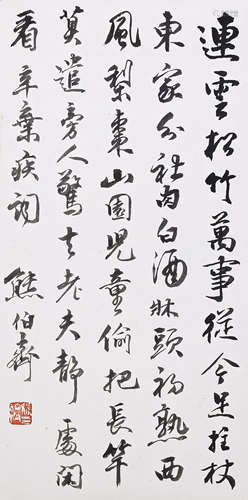 連雲松竹萬事從今足拄杖
東家分社肉白酒牀頭初熟西
風梨棗山園兒童偷把長竿
莫遣旁人驚去老夫靜處閑
看辛棄疾詞 熊伯齊